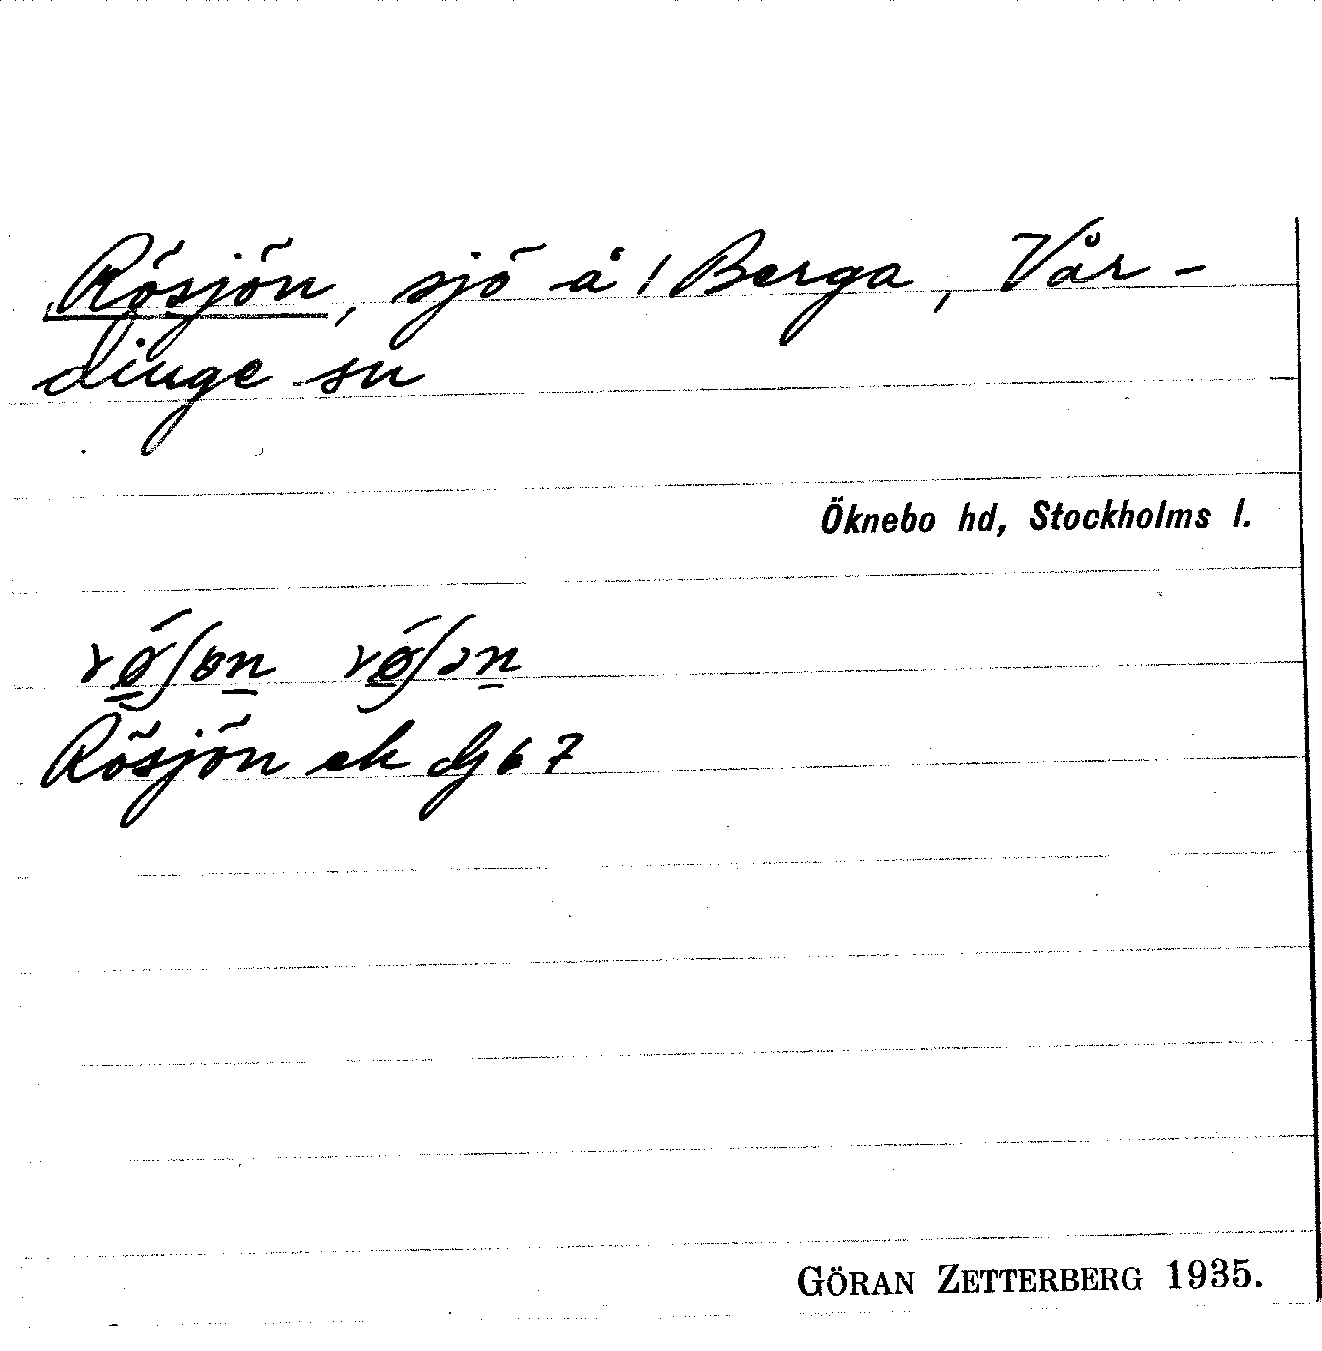 Rösjön, sjö å ! Berga, Vår-
dinge sn
Öknebo hd, Stockholms l.
Rösjön ek
GÖRAN ZETTERBERG 1935.